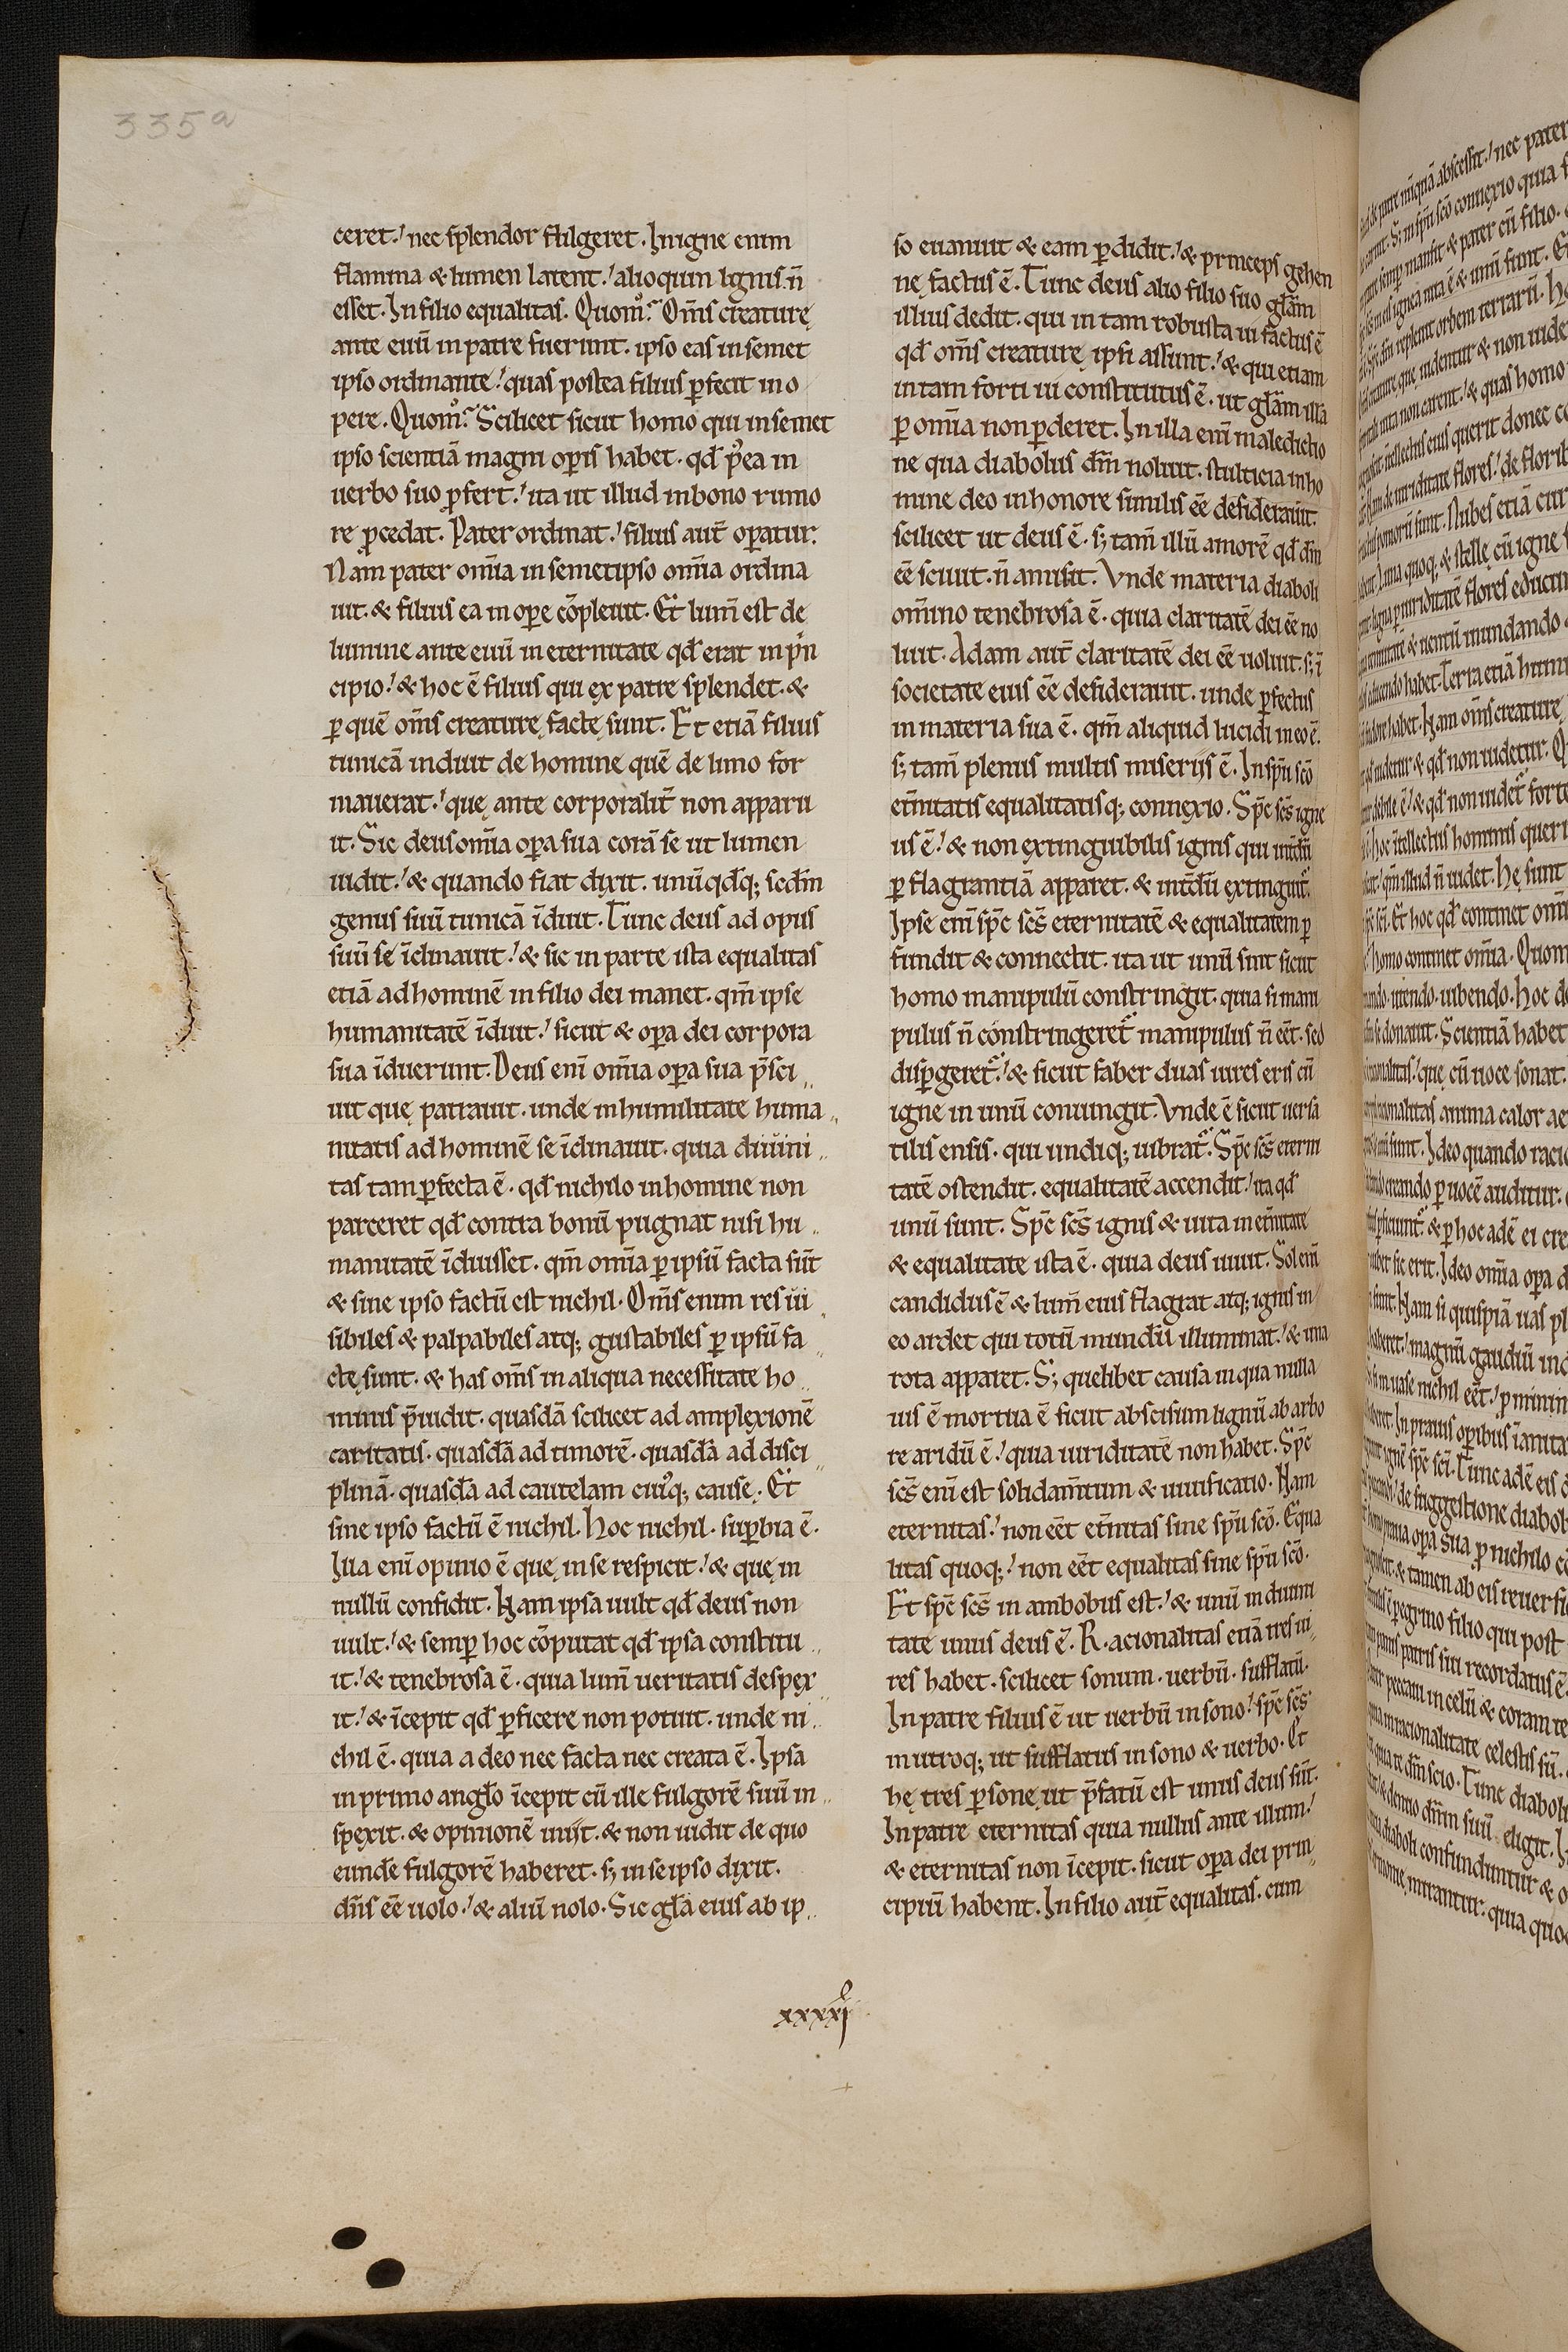 335a
ceret.' nec splendor fulgeret. In igne enim
flamma & lumen latent.' alioquin ignis n̄
esset. In filio equalitas. Quom̊.̃ Om̄s creaturę
ante euū in patre fuerunt. ipso eas in semet
ipso ordinante.' quas postea filius ꝑfecit in o
pere. Quom̊.̃ Scilicet sicut homo qui in semet
ipso scientiā magni oꝑis habet. qd̄ p̓ea in
uerbo suo ꝓfert.' ita ut illud in bono rumo
re ꝓcedat. Pater ordinat.' filius aut̄ oꝑatur.
Nam pater om̄ia in semetipso om̄ia ordina
uit. & filius ea in oꝑe cōpleuit. Et lum̄ est de
lumine ante euū in eternitate qd̄ erat in p̓n
cipio.' & hoc ē filius qui ex patre splendet. &
ꝑ quē om̄s creaturę factę sunt. Et etiā filius
tunicā induit de homine quē de limo for
mauerat.' quę ante corporalit̄ non apparu
it. Sic deus om̄ia oꝑa sua corā se ut lumen
uidit.' & quando fiat dixit. unūqd̄q; scd̄m
genus suū tunicā īduit. Tunc deus ad opus
suū se īclinauit.' & sic in parte ista equalitas
etiā ad hominē in filio dei manet. qm̄ ipse
humanitatē īduit.' sicut & oꝑa dei corpora
sua īduerunt. Deus eni om̄ia oꝑa sua p̄sci
uit quę patrauit. unde in humilitate huma
nitatis ad hominē se īclinauit. quia diuini
tas tam ꝑfecta ē. qd̄ nichilo in homine non
parceret qd̄ contra bonū pugnat nisi hu
manitatē īduisset. qm̄ om̄ia ꝑ ipsū facta sūt
& sine ipso factū est nichil. Om̄s enim res ui
sibiles & palpabiles atq; gustabiles ꝑ ipsū fa
ctę sunt. & has om̄s in aliqua necessitate ho
minis p̄uidit. quasdā scilicet ad amplexionē
caritatis. quasdā ad timorē. quasdā ad disci
plinā. quasdā ad cautelam cui̓q; cause. Et
sine ipso factū ē nichil. Hoc nichil. suꝑbia ē.
Illa eni opinio ē quę in se respicit.' & quę in
nullū confidit. Nam ipsa uult qd̄ deus non
uult.' & semꝑ hoc cōputat qd̄ ipsa constitu
it.' & tenebrosa ē. quia lum̄ ueritatis despex
it.' & īcepit qd̄ ꝑficere non potuit. unde ni
chil ē. quia a deo nec facta nec creata ē. Ipsa
in primo angl̄o īcepit cū ille fulgorē suū in
spexit. & opinionē iniit. & non uidit de quo
eunde fulgorē haberet. s; in seipso dixit.
dn̄s eē uolo.' & aliū nolo. Sic gl̄a eius ab ip
so euanuit & eam ꝑdidit.' & princeps gehen
nę factus ē. Tunc deus alio filio suo gl̄am
illius dedit. qui in tam robusta ui factus ē
qd̄ om̄s creaturę ipsi assunt.' & qui etiam
in tam forti ui constitutus ē. ut gl̄am illā
ꝑ omīa non ꝑderet. In illa eni maledictio
ne qua diabolus dm̄ noluit. stulticia in ho
mine deo in honore similis eē desiderauit.
scilicet ut deus ē. s; tam̄ illū amorē qd̄ dm̄
eē sciuit. n̄ amisit. Vnde materia diaboli
omīno tenebrosa ē. quia claritatē dei eē no
luit. Adam aut̄ claritatē dei eē uoluit. s; ī
societate eius eē desiderauit. unde ꝑfectus
in materia sua ē. qm̄ aliquid lucidi in eo ē.
s; tam̄ plenus multis miserijs ē. In sp̄u sc̄o
et̄nitatis equalitatisq; connexio. Sp̄c sc̄s igne
us ē.' & non extinguibilis ignis qui int̄dū
ꝑ flagrantiā apparet. & int̄dū extinguit̄.
Ipse eni sp̄c sc̄s eternitatē & equalitatem ꝑ
fundit & connectit. ita ut unū sint sicut
homo manipulū constringit. quia si mani
pulus n̄ constringeret̄ manipulus n̄ eēt. sed
disꝑgeret̄.' & sicut faber duas uires eris cū
igne in unū coniungit. Vnde ē sicut uersa
tilis ensis. qui undiq; uibrat̄. Sp̄c sc̄s eterni
tatē ostendit. equalitatē accendit.' ita qd̄
unū sunt. Sp̄c sc̄s ignis & uita in et̄nitate
& equalitate ista ē. quia deus uiuit. Sol eni
candidus ē & lum̄ eius flagrat atq; ignis in
eo ardet qui totū mundū illuminat.' & una
rota apparet. S; quelibet causa in qua nulla
uis ē mortua ē sicut abscisum lignū ab arbo
re aridū ē.' quia uiriditatē non habet. Sp̄c
sc̄s eni est solidam̄tum & uiuificatio. Nam
eternitas.' non eēt et̄nitas sine sp̄u sc̄o. Equa
litas quoq;.' non eēt equalitas sine sp̄u sc̄o.
Et sp̄c sc̄s in ambobus est.' & unū in diuini
tate unus deus ē. R.acionalitas etiā tres ui
res habet. scilicet sonum. uerbū. sufflatū.
In patre filius ē ut uerbū in sono.' sp̄c sc̄s
in utroq; ut sufflatus in sono & uerbo. Et
hę tres ꝑsonę ut p̄fatū est unus deus sūt.
In patre eternitas quia nullus ante illum.'
& eternitas non īcepit. sicut oꝑa dei prin
cipiū habent. In filio aut̄ equalitas. cum
xxxxi